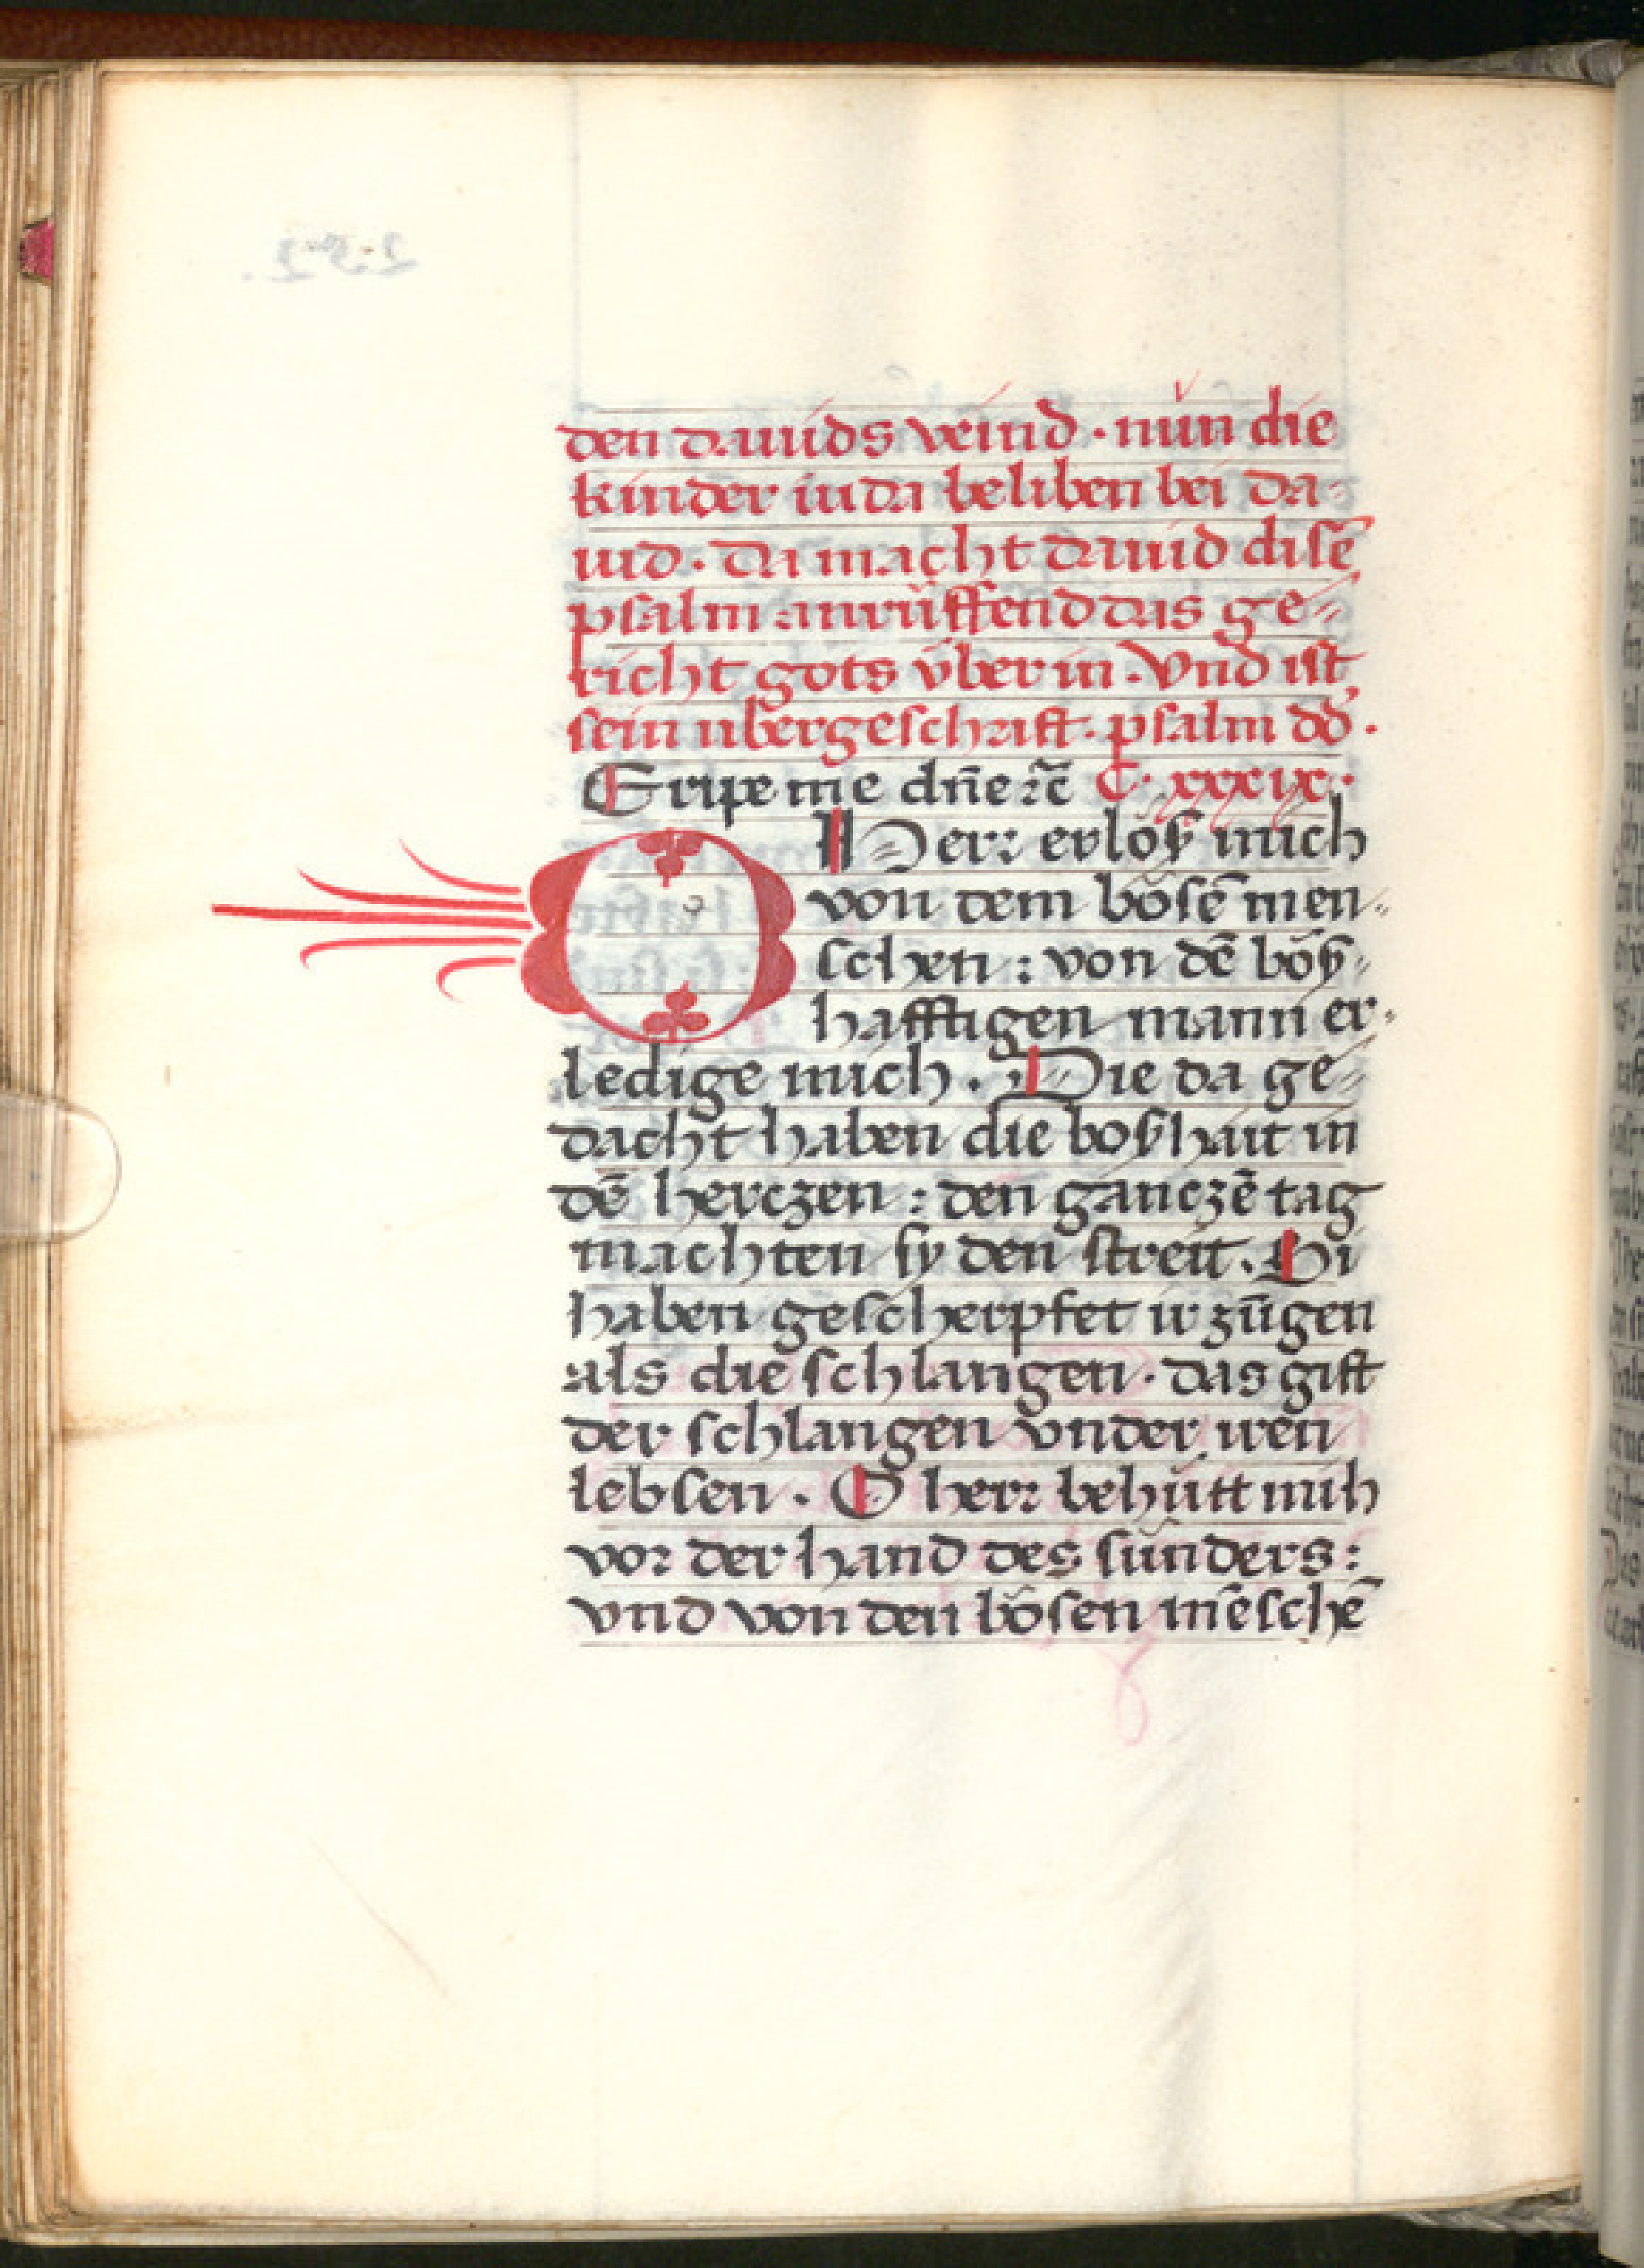 den dauids veind · nŭn die
kinder iuda beliben bei da-
uid · Da macht dauid disē
psalm anrŭffend das ge-
richt gots v̈ber in · Vnd ist
sein ubergeschrift · psalm dd̄ ·
Eripe me dn̄e ⁊c̄ C · xxxix ·
O Herr erlöß mich
von dem bösē men-
schen : von dē böß-
hafftigen mann er-
ledige mich · Die da ge-
dacht haben die boßhait in
dē herczen : den ganczē tag
machten sy den streit · Si
haben gescherpfet ir zūgen
als die schlangen · das gift
der schlangen vnder iren
lebsen · O herr behŭtt mih
vor der hand des sŭnders :
vnd von den bösen mēschē